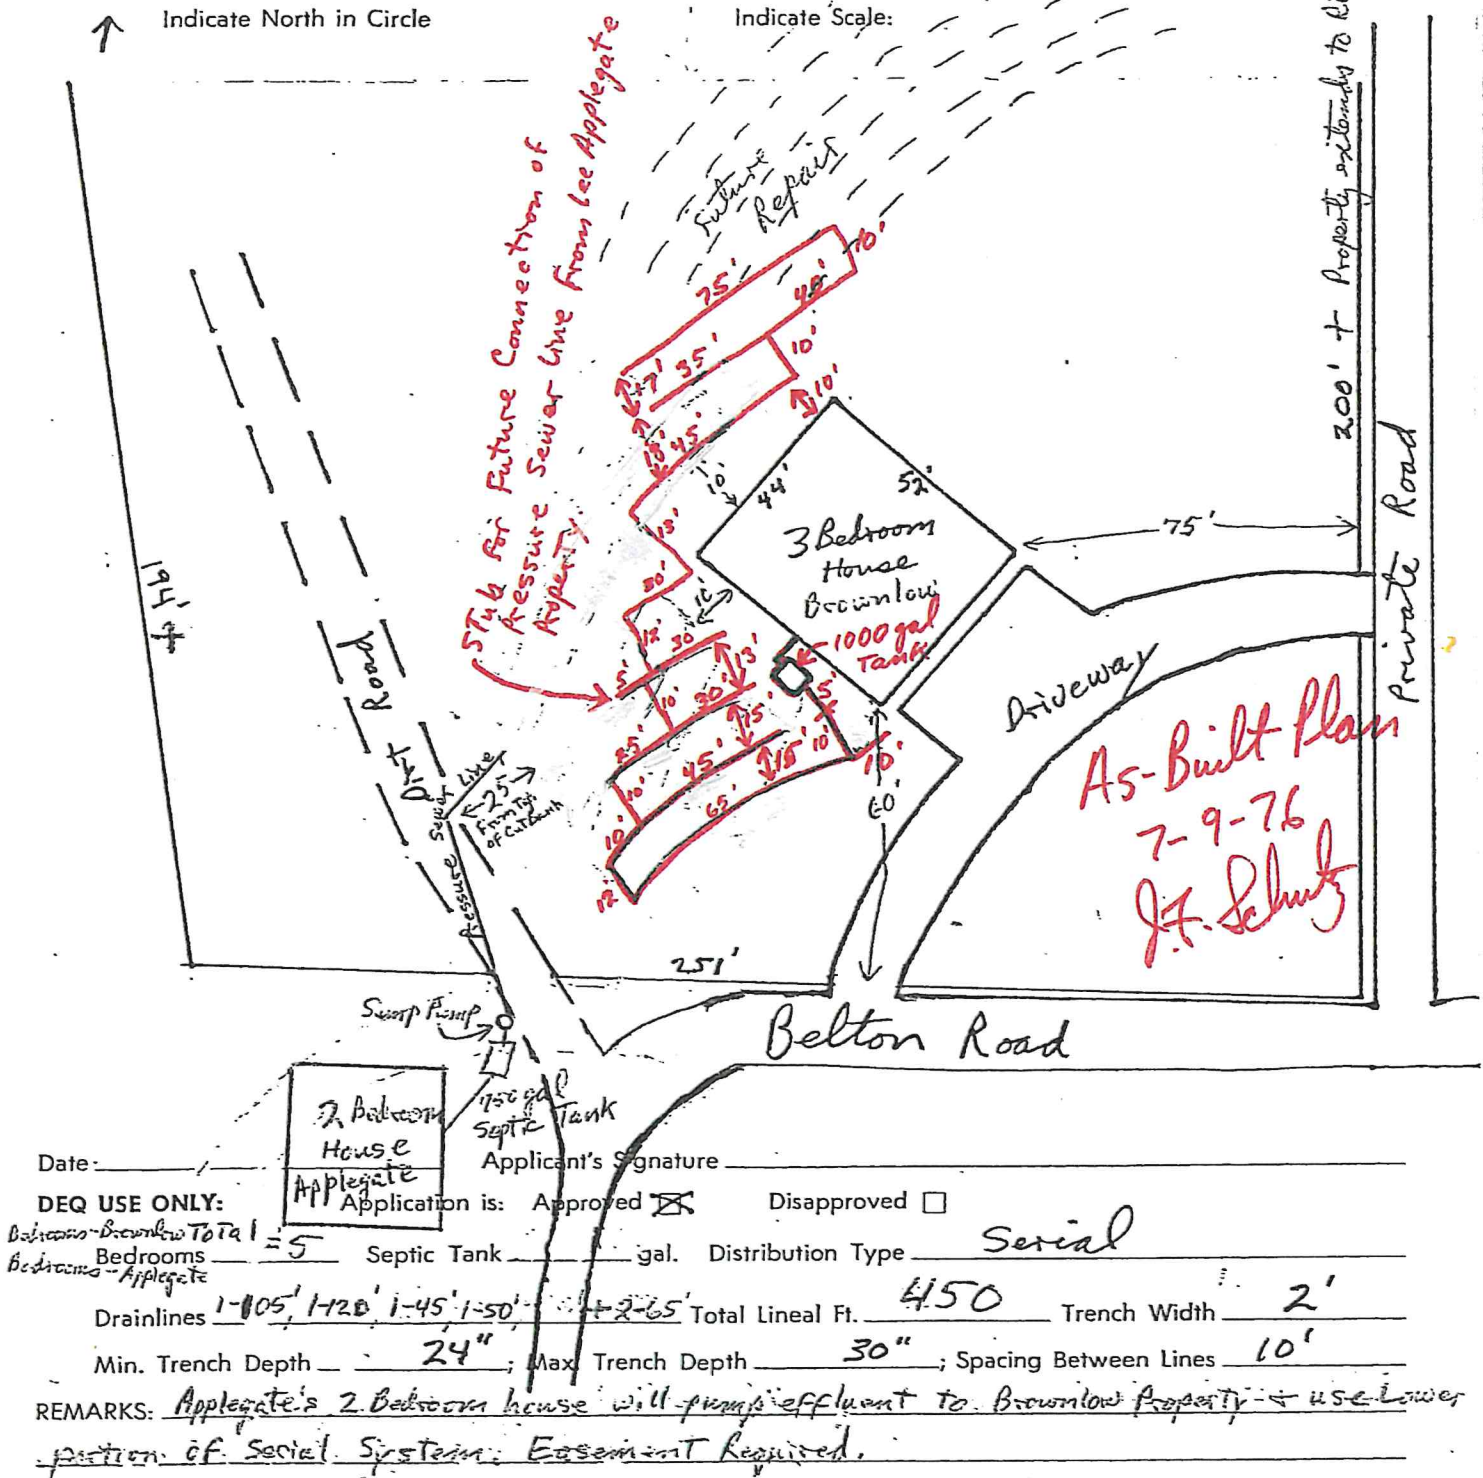 Indicate North in Circle
Indicate Scale:
200' + Property extends to
Private Road
STub for Future Connection of
Pressure Sewer Line From Lee Applegate
Property
Future
Repair
75'
10'
40'
35'
10'
17'
10'
18'
45'
10'
44'
52'
75'
3 Bedroom
House
Brownlow
1000 gal
Tank
15'
30'
10'
12'
30'
13'
5'
10'
30'
25'
15'
45'
10'
15'
65'
10'
12'
5'
10'
10'
60'
194' ±
Dirt Road
Pressure Sewer Line
25'
From Top
of CutBank
Driveway
As-Built Plan
7-9-76
J.F. Schultz
251'
Belton Road
Sump Pump
750 gal
Septic Tank
2 Bedroom
House
Applegate
Date:
Applicant's Signature
DEQ USE ONLY:
Application is: Approved ☒ Disapproved ☐
Bedrooms-Brownlow ToTal
Bedrooms = 5 Septic Tank gal. Distribution Type Serial
Bedrooms-Applegate
Drainlines 1-105', 1-120', 1-45', 1-50' + 2-65' Total Lineal Ft. 450 Trench Width 2'
Min. Trench Depth 24"; Max Trench Depth 30"; Spacing Between Lines 10'
REMARKS: Applegate's 2 Bedroom house will pump effluent to Brownlow Property & use Lower
portion of Serial System. Easement Required.